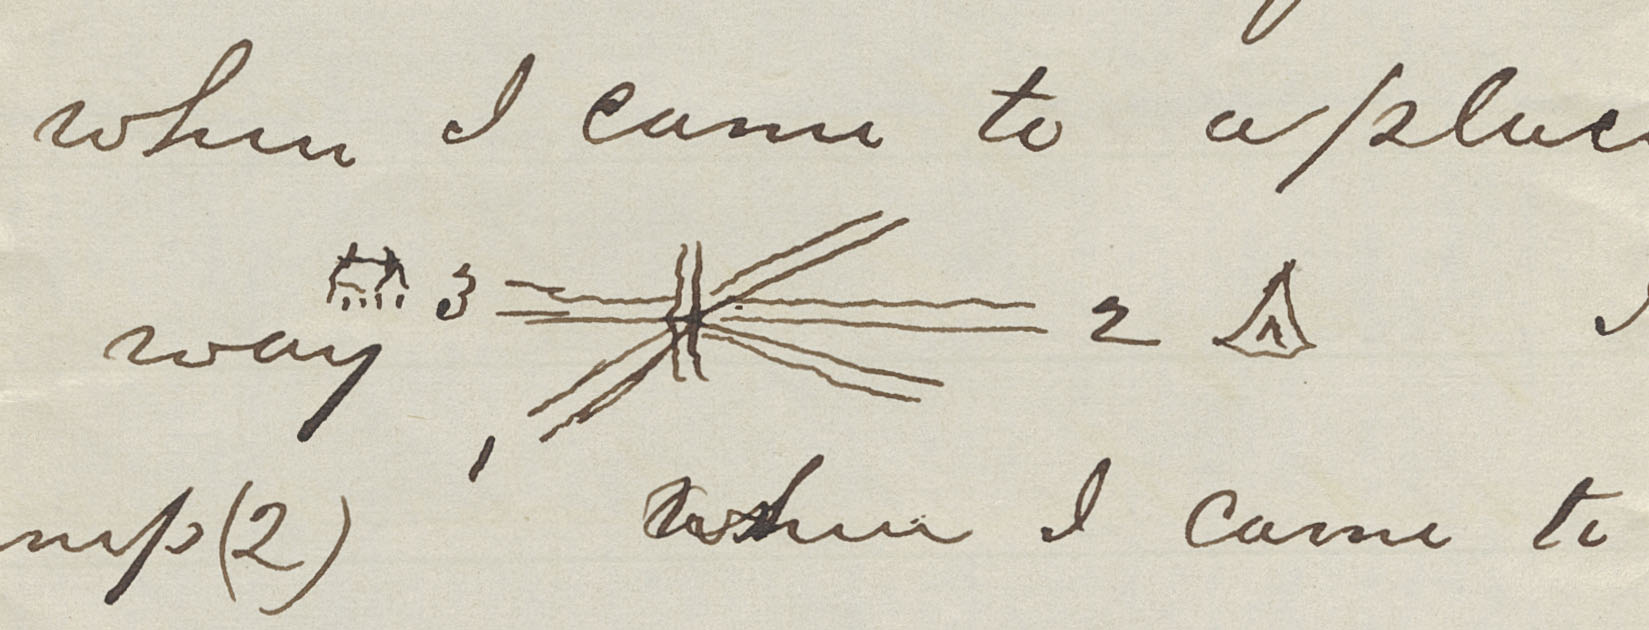 when I came to a place
3 2
way
1
mp(2) when I came to